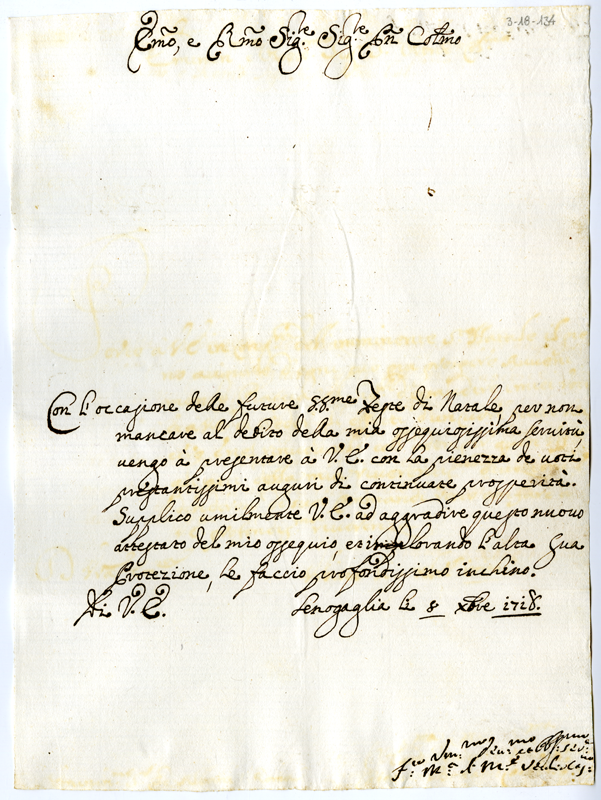 3-18-134
Emo, e Rmo Sig.re Sig.re Pñ Colmo
Con l'occasione delle future SS.me Feste di Natale per non
mancare al debito della mia ossequiosissima servitù
vengo à presentare à V. E. con la pienezza de voti
prestantissimi auguri di continuate prosperità.
Supplico umilmente V. E. ad aggradire questo nuovo
attestato del mio ossequio, et implorando l'alta Sua
Protezione, le faccio profondissimo inchino.
Di V. E. Senogaglia li 8 Xbre 1718.
Um.mo
f. M.a